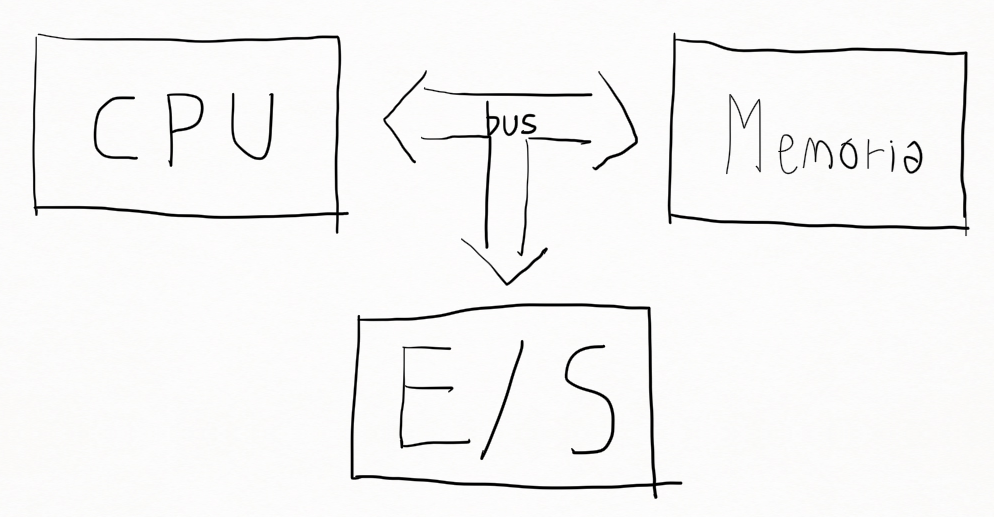 CPU
bus
Memoria
E/S